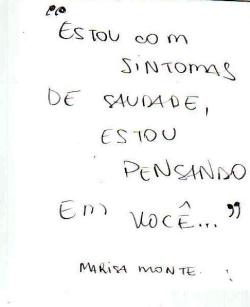 "ESTOU COM
SINTOMAS
DE SAUDADE,
ESTOU
PENSANDO
EM VOCÊ..."
MARISA MONTE.